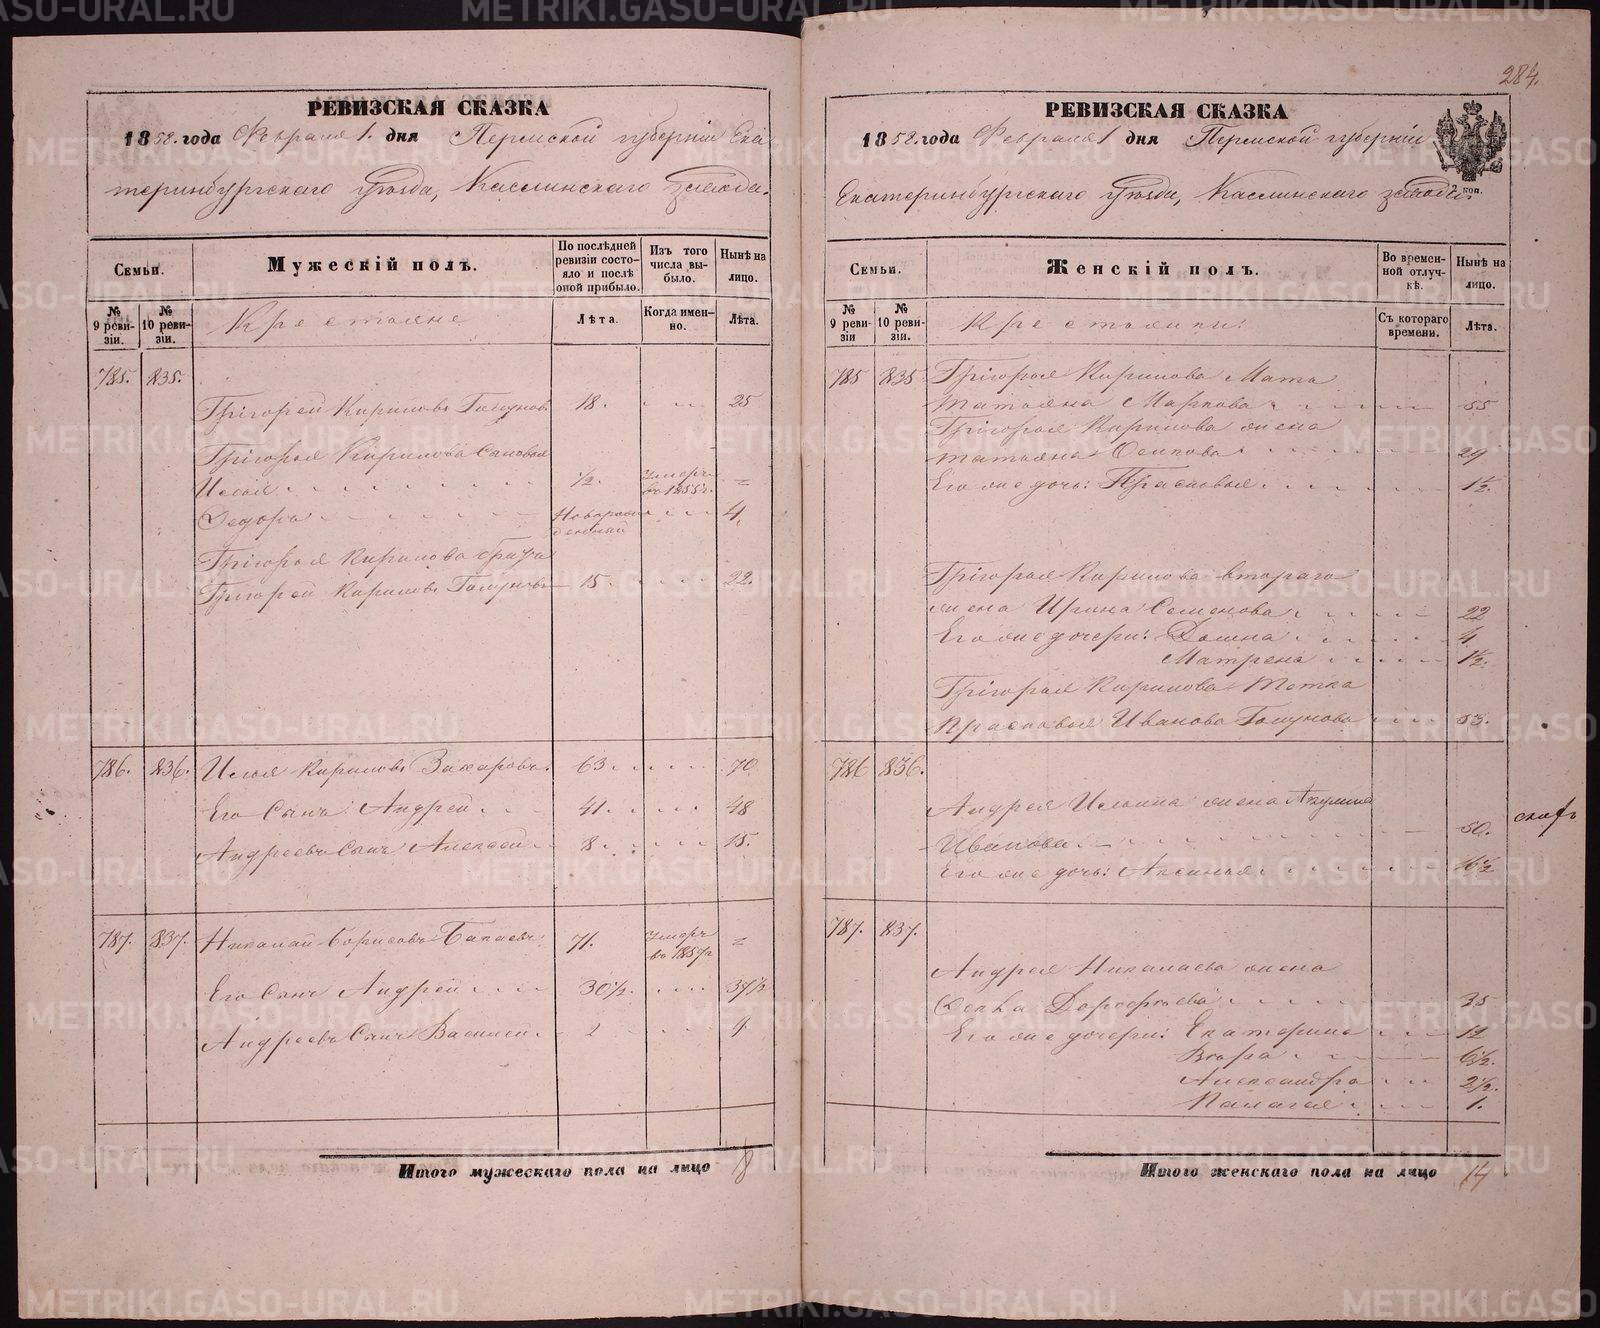 284.
РЕВИЗСКАЯ СКАЗКА
1858. года Февраля 1. дня Пермской губернiи Ека-
теринбургскаго уѣзда, Каслинскаго завода.
Семьи.
Мужескiй полъ.
По послѣдней ревизiи состояло и послѣ оной прибыло.
Изъ того числа выбыло.
Нынѣ на лицо.
№ 9 ревизiи.
№ 10 ревизiи.
Крестьяне
Лѣта.
Когда именно.
Лѣта.
785. 835.
Григорей Кириловъ Голунов 18. 25
Григорья Кирилова сыновья
Илья ½. Умеръ въ 1855 г. =
Федоръ Новорожденный 4.
Григорья Кирилова братъ
Григорей Кириловъ Голуновъ 15. 22.
786. 836. Илья Кириловъ Захаровъ. 63 70
Его Сынъ Андрей 41. 48
Андреевъ Сынъ Алексей 8. 15.
787. 837. Николай Борисовъ 71. Умеръ въ 1857 г =
Его Сынъ Андрей 30½. 37½
Андреевъ Сынъ Василей 2 9
Итого мужескаго пола на лицо 8
РЕВИЗСКАЯ СКАЗКА
1858. года Февраля 1 дня Пермской губернiи
Екатеринбургскаго уѣзда, Каслинскаго завода.
2 коп.
Семьи.
Женскiй полъ.
Во временной отлучкѣ.
Нынѣ на лицо.
№ 9 ревизiи
№ 10 ревизiи.
Крестьянки:
Съ котораго времени.
Лѣта.
785 835 Григорья Кирилова Мать
Татьяна Маркова 55
Григорья Кирилова жена
Татьяна Осипова 29
Его же дочь: Прасковья 1½.
Григорья Кирилова втораго
жена Ирина Семенова 22
Его же дочери: Домна 4
Матрена 1½.
Григорья Кирилова Тетка
Прасковья Иванова Голунова 53.
786 836.
Андрея Ильина жена Акулина
Иванова 50.
Его же дочь: Аксинья 16½
787. 837.
Андрея Николаева жена
Фекла Дорофеева 35
Его же дочери: Екатерина 12
Вѣра 6½.
Александра 2½.
Палагея 1.
Итого женскаго пола на лицо 14